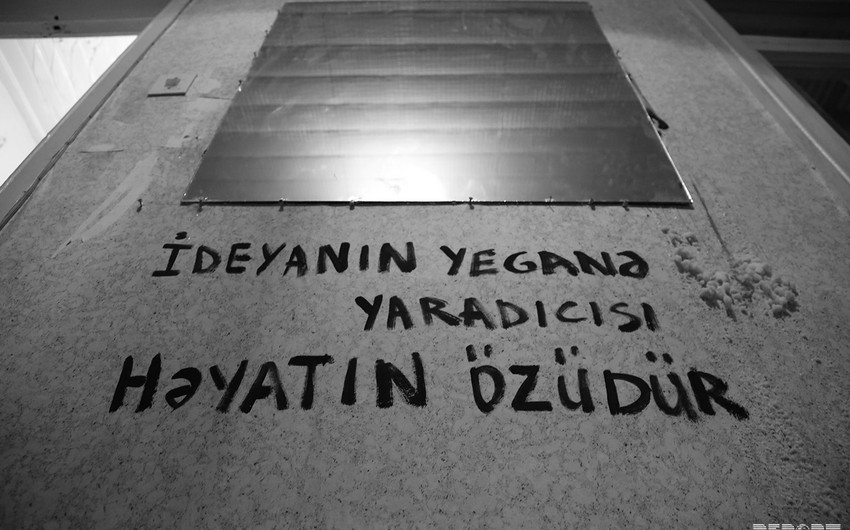 İDEYANIN YEGANƏ
YARADICISI
HƏYATIN ÖZÜDÜR